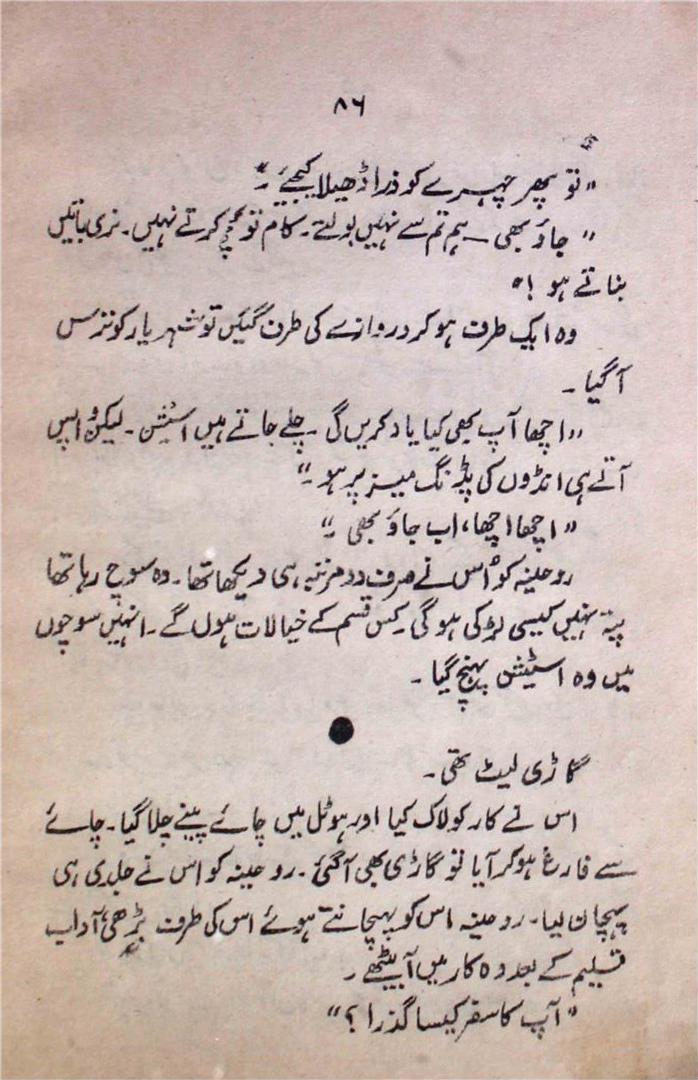 ۸۶
"تو پھر چہرے کو ذرا ڈھیلا کیجئے۔"
"جاؤ بھی ـ ہم تم سے نہیں بولتے۔ کام تو کچھ کرتے نہیں۔ نری باتیں
بناتے ہو!"
وہ ایک طرف ہو کر دروازے کی طرف گئیں تو شہر یار کو ترس
آ گیا۔
"اچھا آپ بھی کیا یاد کریں گی۔ چلے جاتے ہیں اسٹیشن۔ لیکن واپس
آتے ہی انڈوں کی پڈنگ میز پر ہو۔"
"اچھا اچھا، اب جاؤ بھی۔"
روحینہ کو اُس نے صرف دو مرتبہ ہی دیکھا تھا۔ وہ سوچ رہا تھا
پتہ نہیں کیسی لڑکی ہو گی۔ کس قسم کے خیالات ہوں گے۔ انہیں سوچوں
میں وہ اسٹیشن پہنچ گیا۔
●
گاڑی لیٹ تھی۔
اس نے کار کو لاک کیا اور ہوٹل میں چائے پینے چلا گیا۔ چائے
سے فارغ ہو کر آیا تو گاڑی بھی آ گئی۔ روحینہ کو اس نے جلدی ہی
پہچان لیا۔ روحینہ اس کو پہچانتے ہوئے اس کی طرف بڑھی، آداب
تسلیم کے بعد وہ کار میں آ بیٹھے۔
"آپ کا سفر کیسا گذرا؟"